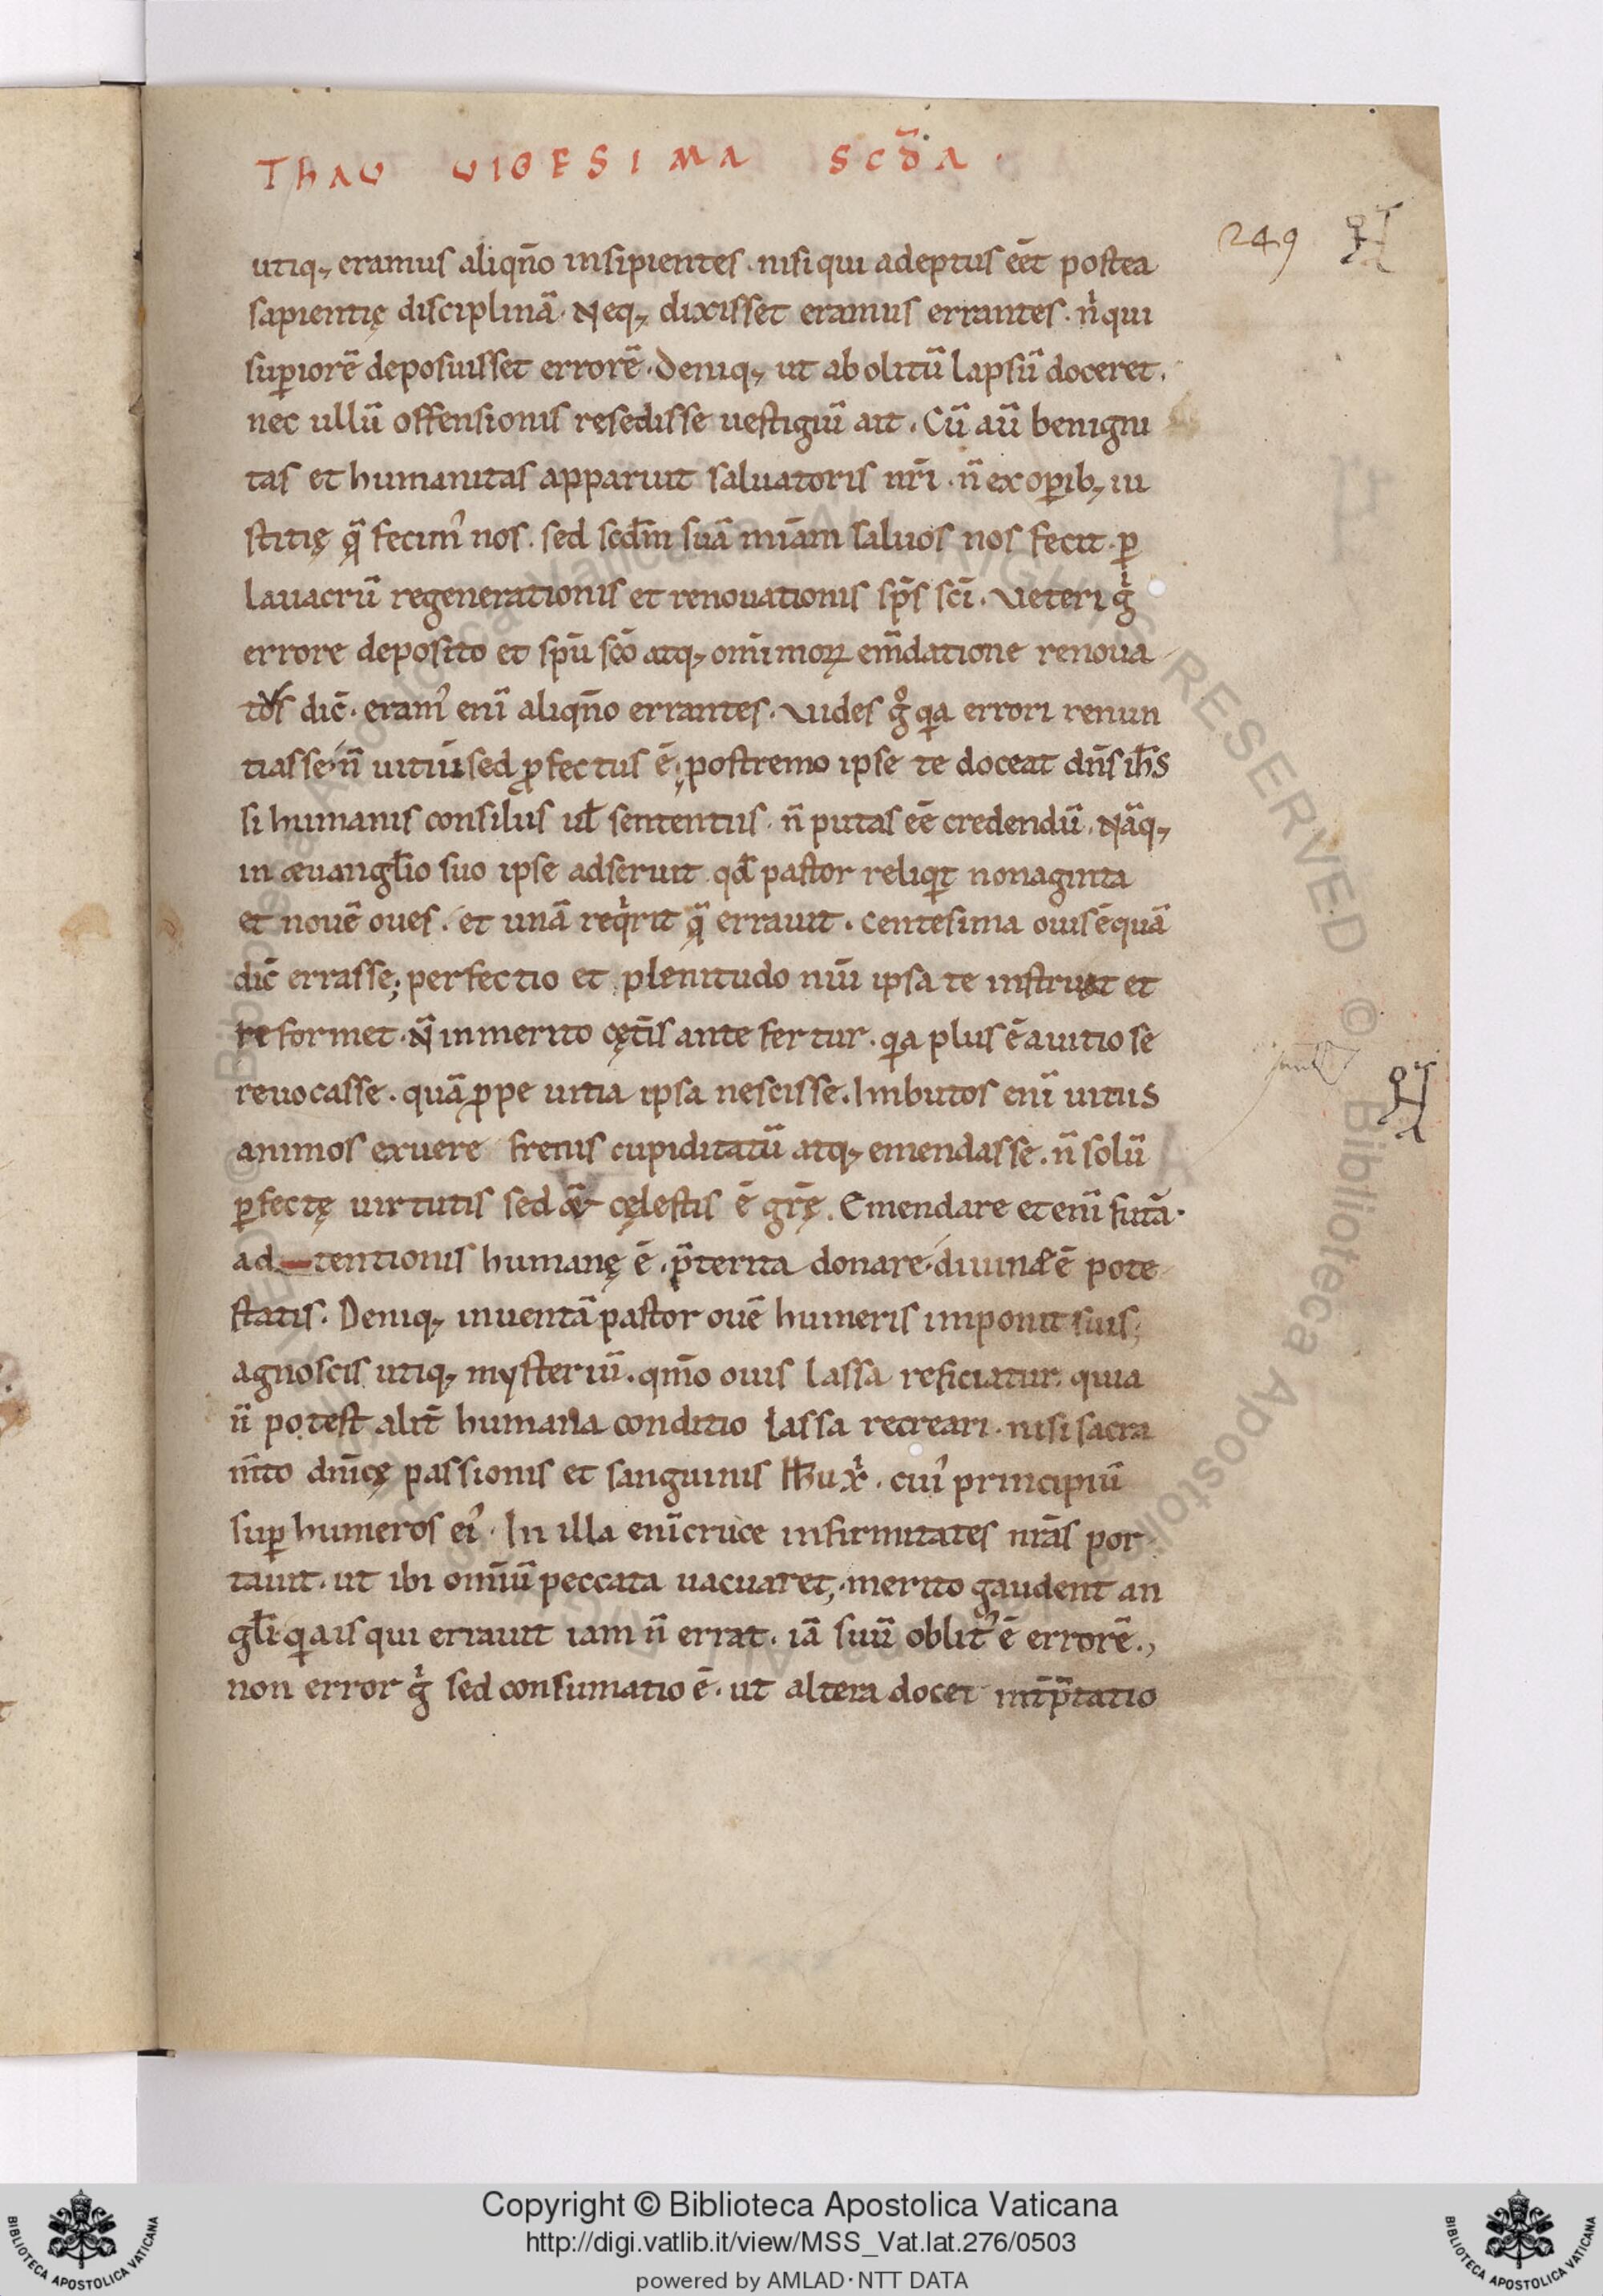 Thau uigesima scđa.
249
utiq; eramus aliqn̄o insipientes. nisi qui adeptus eēt postea
sapientię disciplinā. Neq; dixisset eramus errantes. n̍ qui
sup̱iorē deposuisset errorē. Deniq; ut abolitū lapsū doceret.
nec ullū offensionis resedisse uestigiū ait. Cū aū benigni
tas et humanitas apparuit saluatoris nr̄i. n̄ ex op̱ib; iu
stitię q̄ fecim᾿ nos. sed scd̄m suā miām saluos nos fecit. p̱
lauacrū regenerationis et renouationis sp̄s sc̄i. Veteri g̍
errore deposito et sp̄u sc̄o atq; om̄i moꝝ em̄datione renoua
tus dic̄. eram᾿ enī aliqn̄o errantes. Vides gͦ qia errori renun
tiasse n̄ uitiū sed ꝓfectus ē. postremo ipse te doceat dn̄s ih̄s
si humanis consiliis ul̄ sententiis. n̄ putas eē credendū. Nāq;
in æuangl̄io suo ipse adseruit qd̄ pastor reliqit nonaginta
et nouē oues. et unā reqirit q̄ errauit. centesima ouis ē quā
dic̄ errasse; perfectio et plenitudo nūi ipsa te instruat et
reformet. N̄ inmerito cęt̄is ante fertur. qia plus ē a uitio se
reuocasse. quā ꝓpe uitia ipsa nescisse. Imbutos enī uitiis
animos exuere frenis cupiditatū atq; emendasse. n̄ solū
p̱fectę uirtutis sed & cęlestis ē gr̄ę. Emendare etenī futā.
ad tentionis humanę ē. p̄terita donare. diuinæ ē pote
statis. Deniq; inuentā pastor ouē humeris imponit suis;
agnoscis utiq; mysteriū. qm̄o ouis lassa reficiatur. quia
n̄ potest alit̄ humana conditio lassa recreari. nisi sacra
m̄to dn̄icę passionis et sanguinis ih̄u xp̍. cui᾿ principiū
sup̱ humeros ei᾿. In illa enī cruce infirmitates nr̄as por
tauit. ut ibi om̄iū peccata uacuaret; merito gaudent an
gl̄i qia is qui errauit iam n̄ errat. iā suū oblit᾿ ē errorē.,
non error g̍ sed consumatio ē. ut altera docet int̄p̄tatio
© Biblioteca Apostolica Vaticana ALL RIGHTS RESERVED
Copyright © Biblioteca Apostolica Vaticana
http://digi.vatlib.it/view/MSS_Vat.lat.276/0503
powered by AMLAD·NTT DATA
BIBLIOTECA APOSTOLICA VATICANA
BIBLIOTECA APOSTOLICA VATICANA